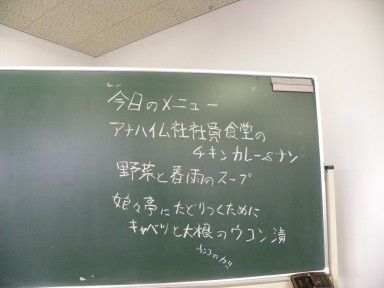 今日のメニュー
アナハイム社社員食堂の
チキンカレー&ナン
野菜と春雨のスープ
娘々亭にたどりつくために
キャベツと大根のウコン漬
ウコンの力!!